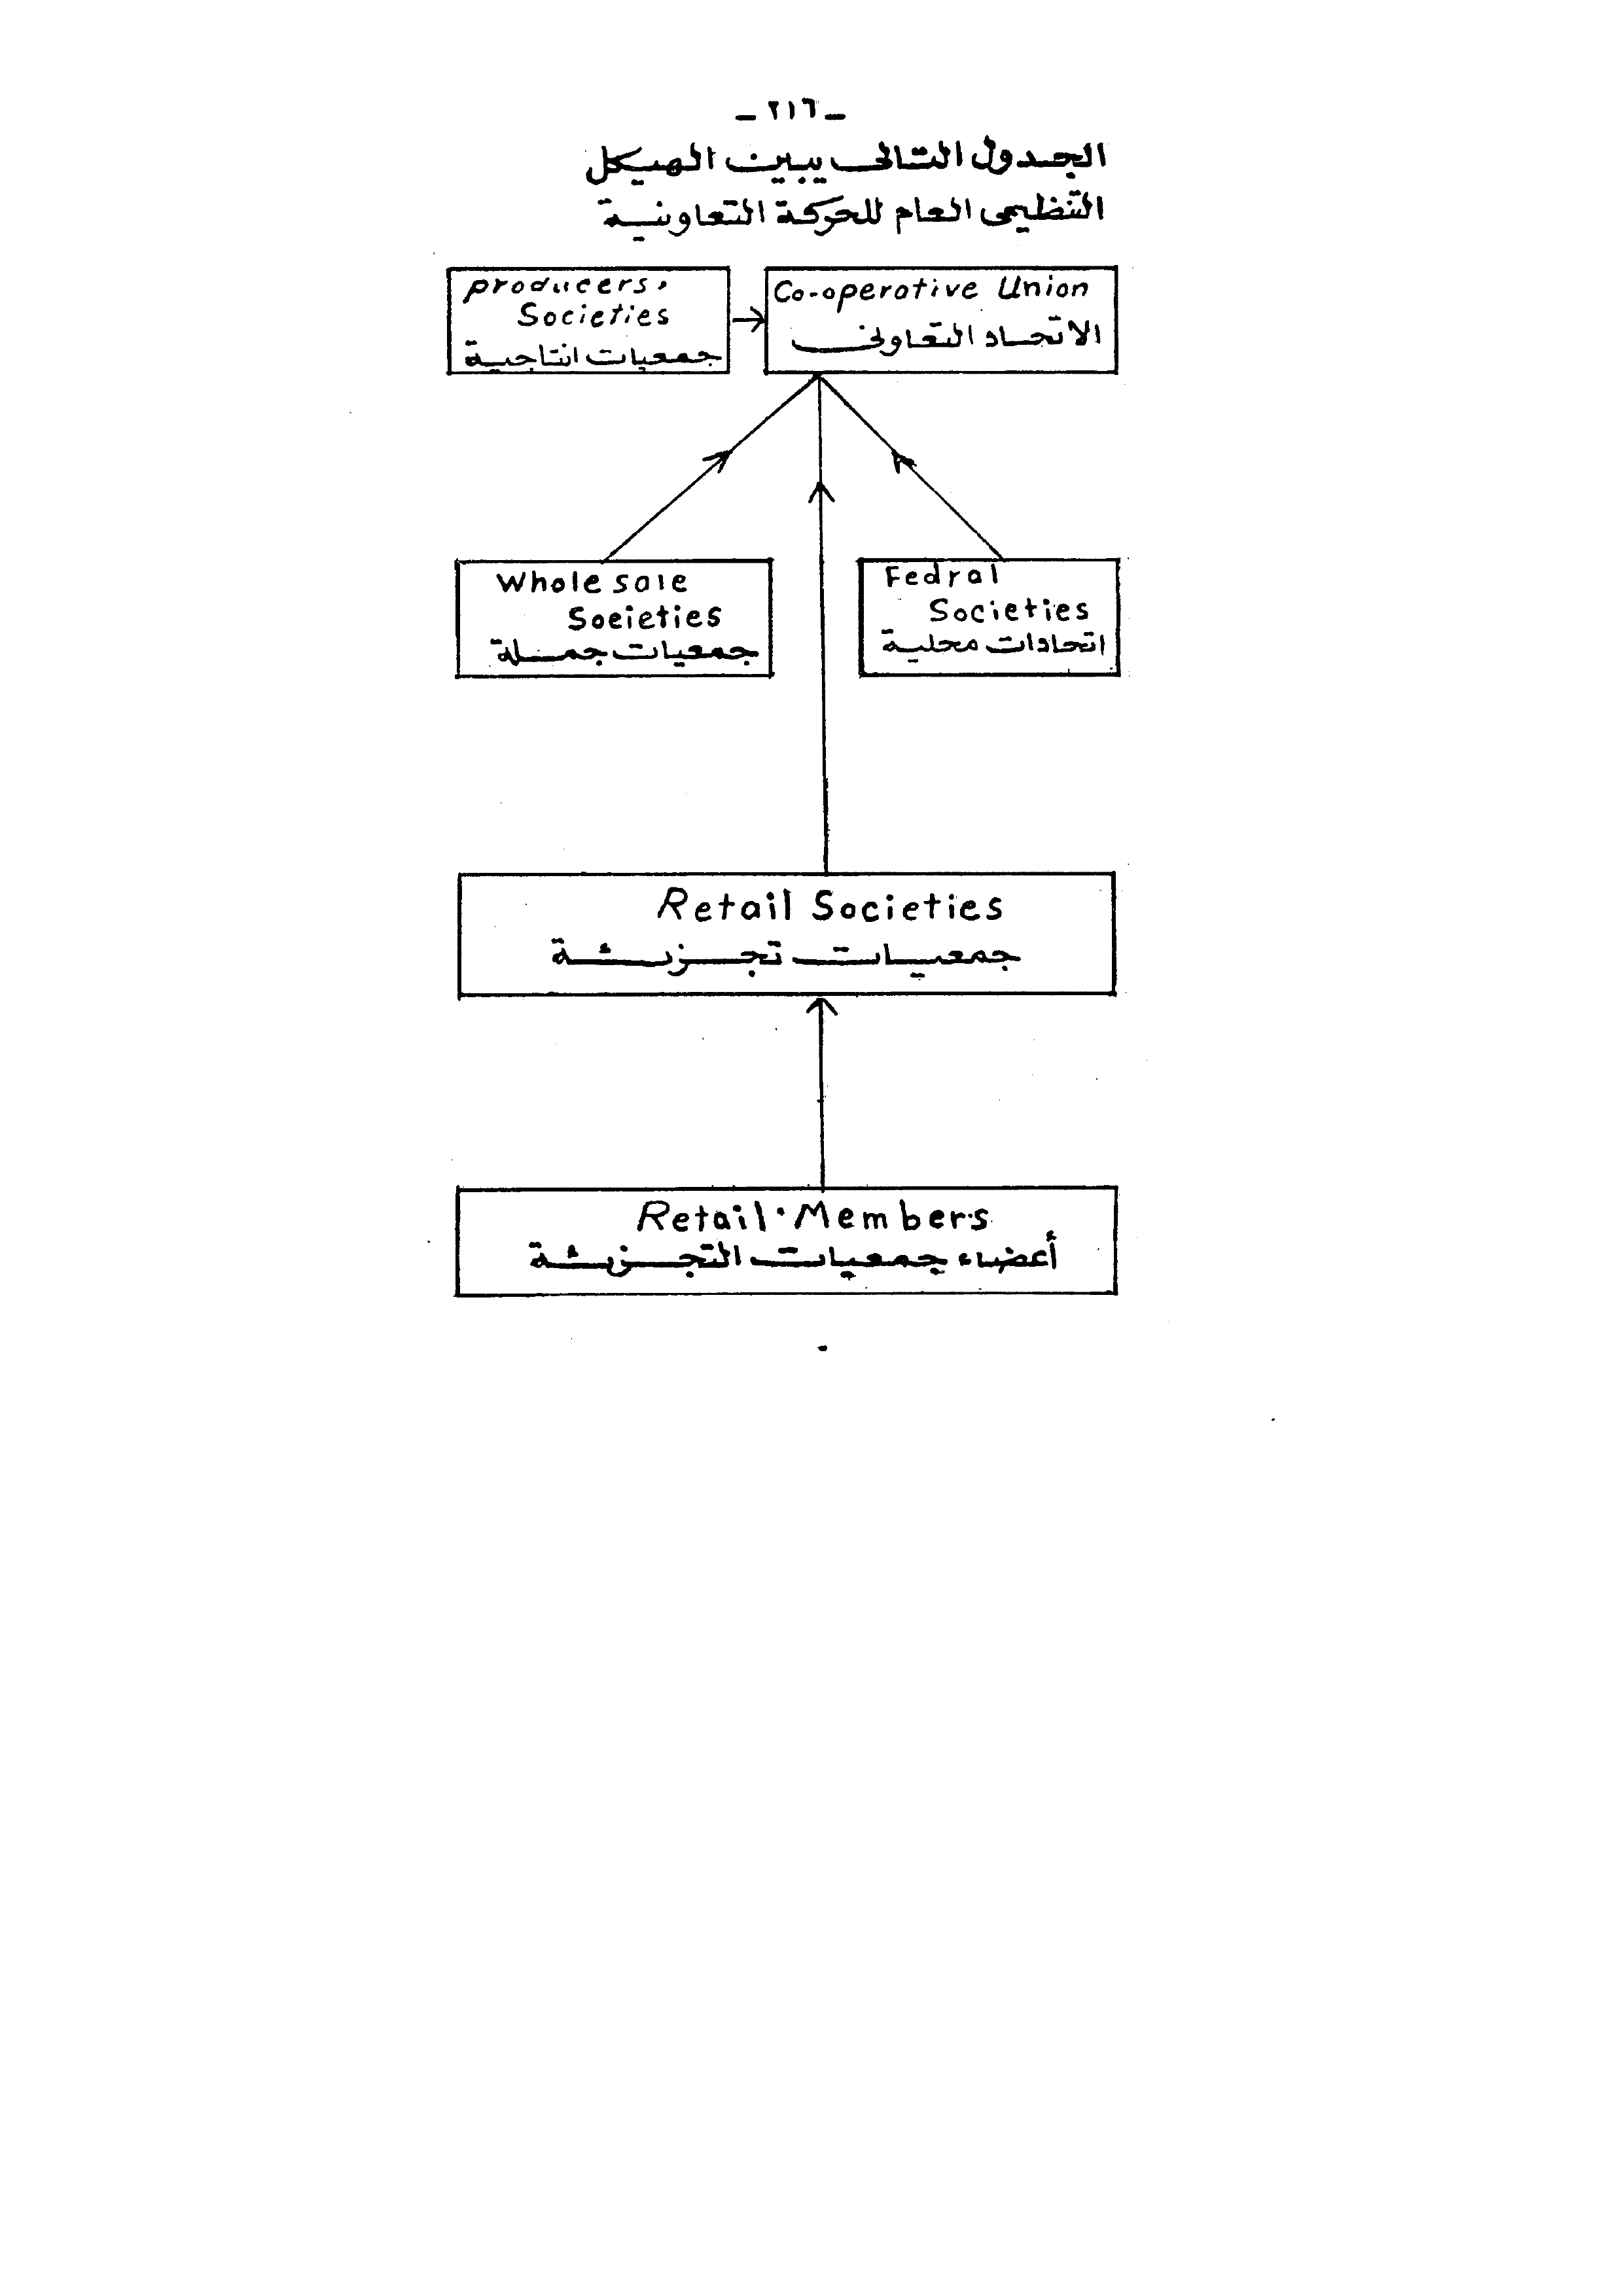 ـ ٢١٦ ـ
الجدول التالى يبين الهيكل
التنظيمى العام للحركة التعاونية
producers,
Societies
جمعيات انتاجية
Co-operative Union
الاتحاد التعاونى
Whole sale
Soeieties
جمعيات جملة
Fedral
Societies
اتحادات محلية
Retail Societies
جمعيات تجزئة
Retail . Members
أعضاء جمعيات التجزئة